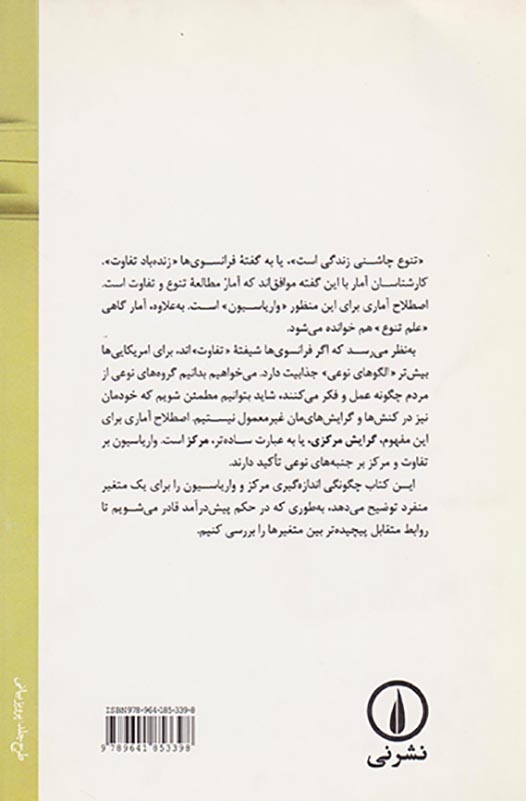 «تنوع چاشنی زندگی است»، یا به گفتهٔ فرانسوی‌ها «زنده‌باد تفاوت».
کارشناسان آمار با این گفته موافق‌اند که آمارْ مطالعهٔ تنوع و تفاوت است.
اصطلاح آماری برای این منظور «واریاسیون» است. به‌علاوه، آمار گاهی
«علم تنوع» هم خوانده می‌شود.
به‌نظر می‌رسد که اگر فرانسوی‌ها شیفتهٔ «تفاوت»اند، برای امریکایی‌ها
بیش‌تر «الگوهای نوعی» جذابیت دارد. می‌خواهیم بدانیم گروه‌های نوعی از
مردم چگونه عمل و فکر می‌کنند، شاید بتوانیم مطمئن شویم که خودمان
نیز در کنش‌ها و گرایش‌های‌مان غیرمعمول نیستیم. اصطلاح آماری برای
این مفهوم، گرایش مرکزی، یا به عبارت ساده‌تر، مرکز است. واریاسیون بر
تفاوت و مرکز بر جنبه‌های نوعی تأکید دارند.
این کتاب چگونگی اندازه‌گیری مرکز و واریاسیون را برای یک متغیر
منفرد توضیح می‌دهد، به‌طوری که در حکم پیش‌درآمد قادر می‌شویم تا
روابط متقابل پیچیده‌تر بین متغیرها را بررسی کنیم.
طرح جلد: پرویز بیانی
ISBN 978-964-185-339-8
9 789641 853398
نشرنی